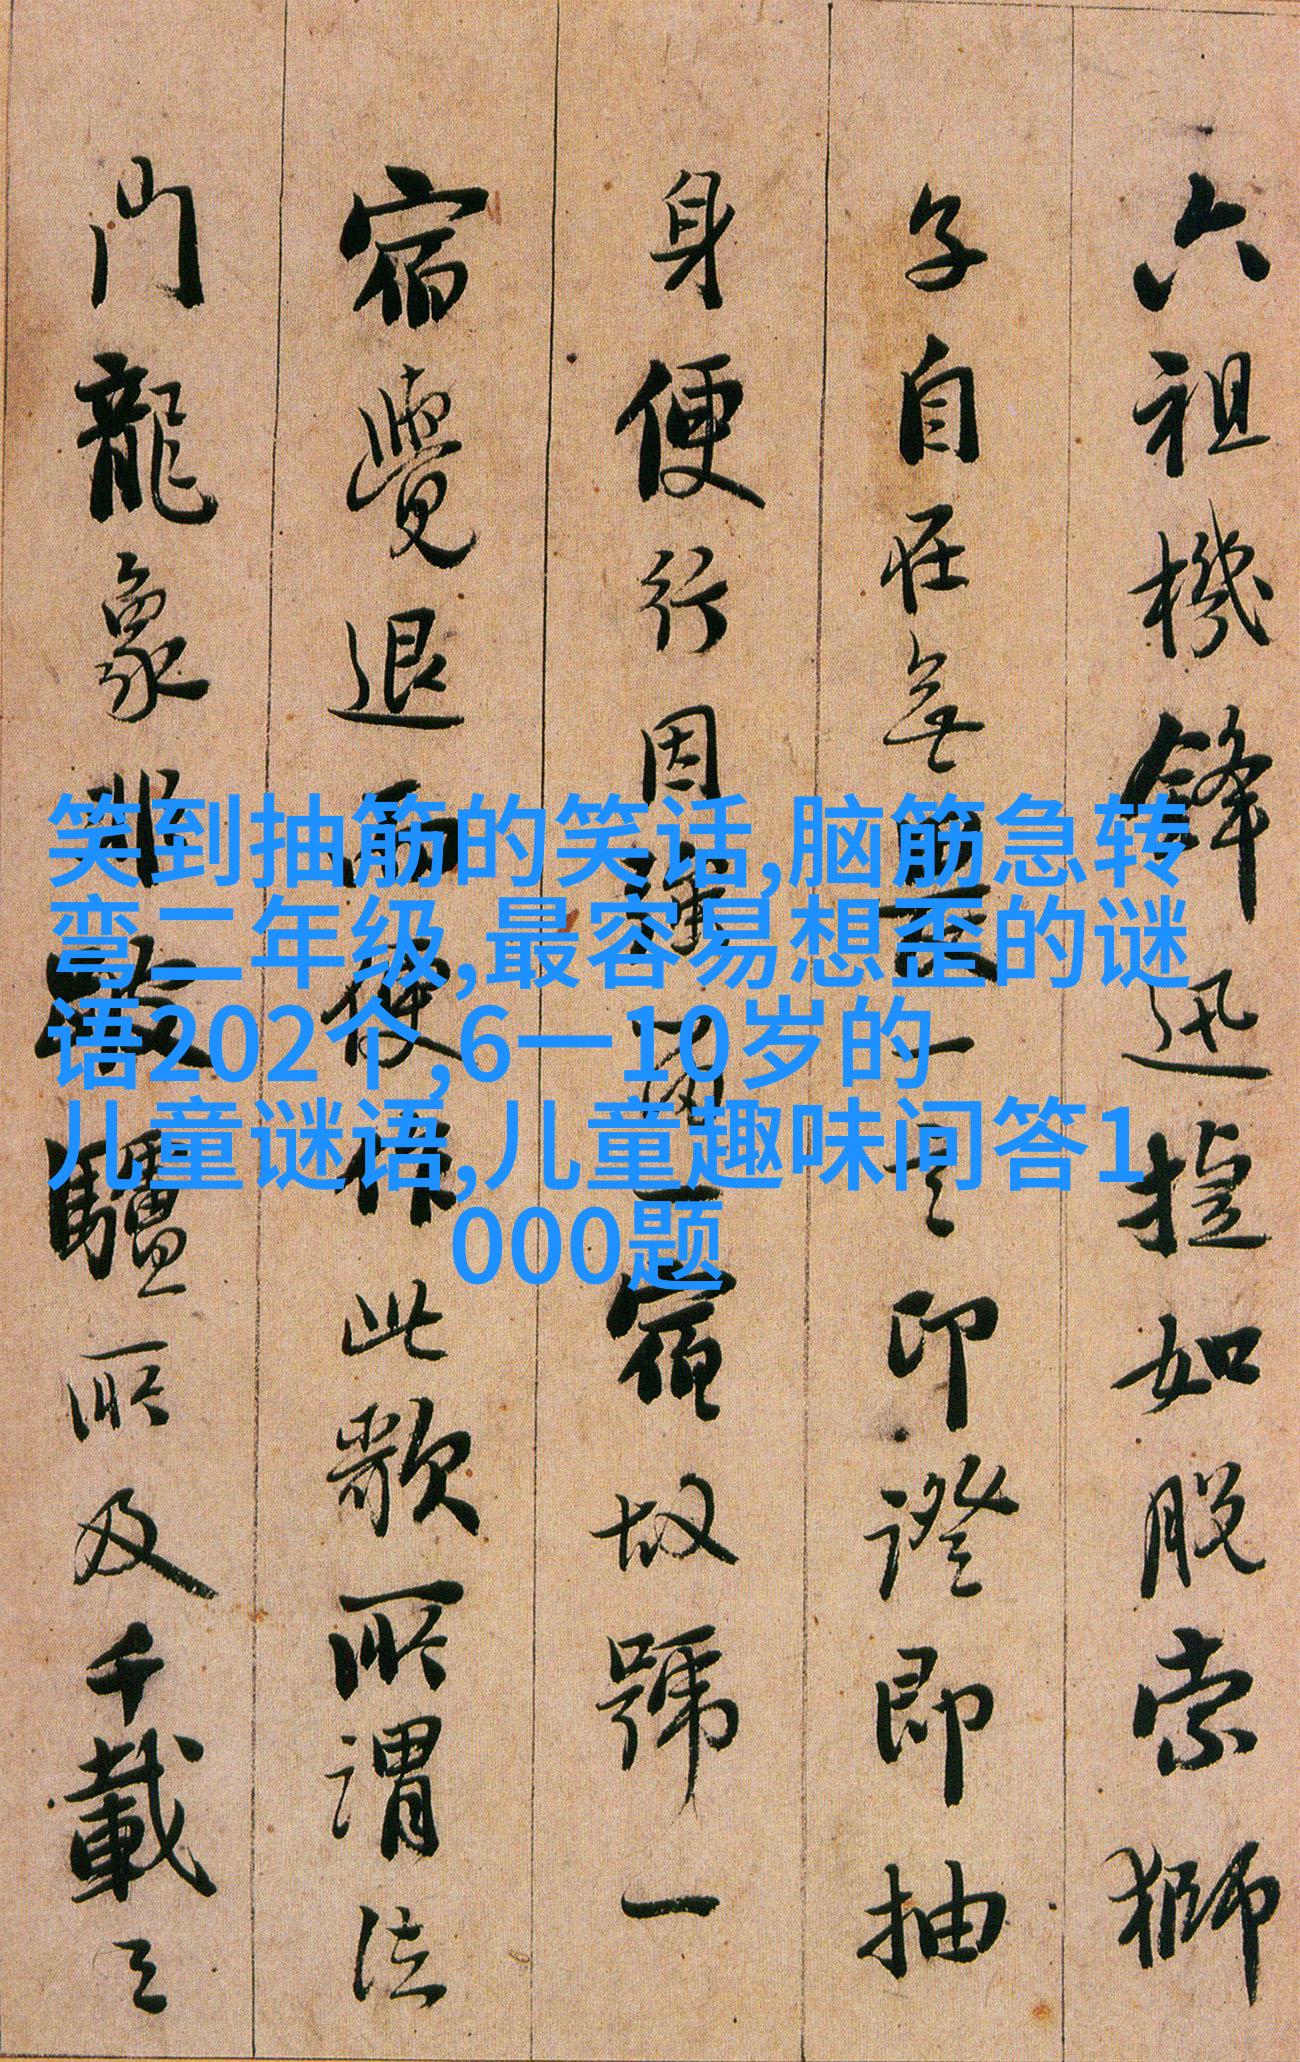 六祖機鋒迅捷如脫索獅
子自在無畏一言印證即抽
身便行因強留一宿故號一
宿覺退而便作此歌所謂法
門龍象非驢所及千載之
笑到抽筋的笑话,脑筋急转
弯二年级,最容易想歪的谜
语202个,6一10岁的
儿童谜语,儿童趣味问答1
000题